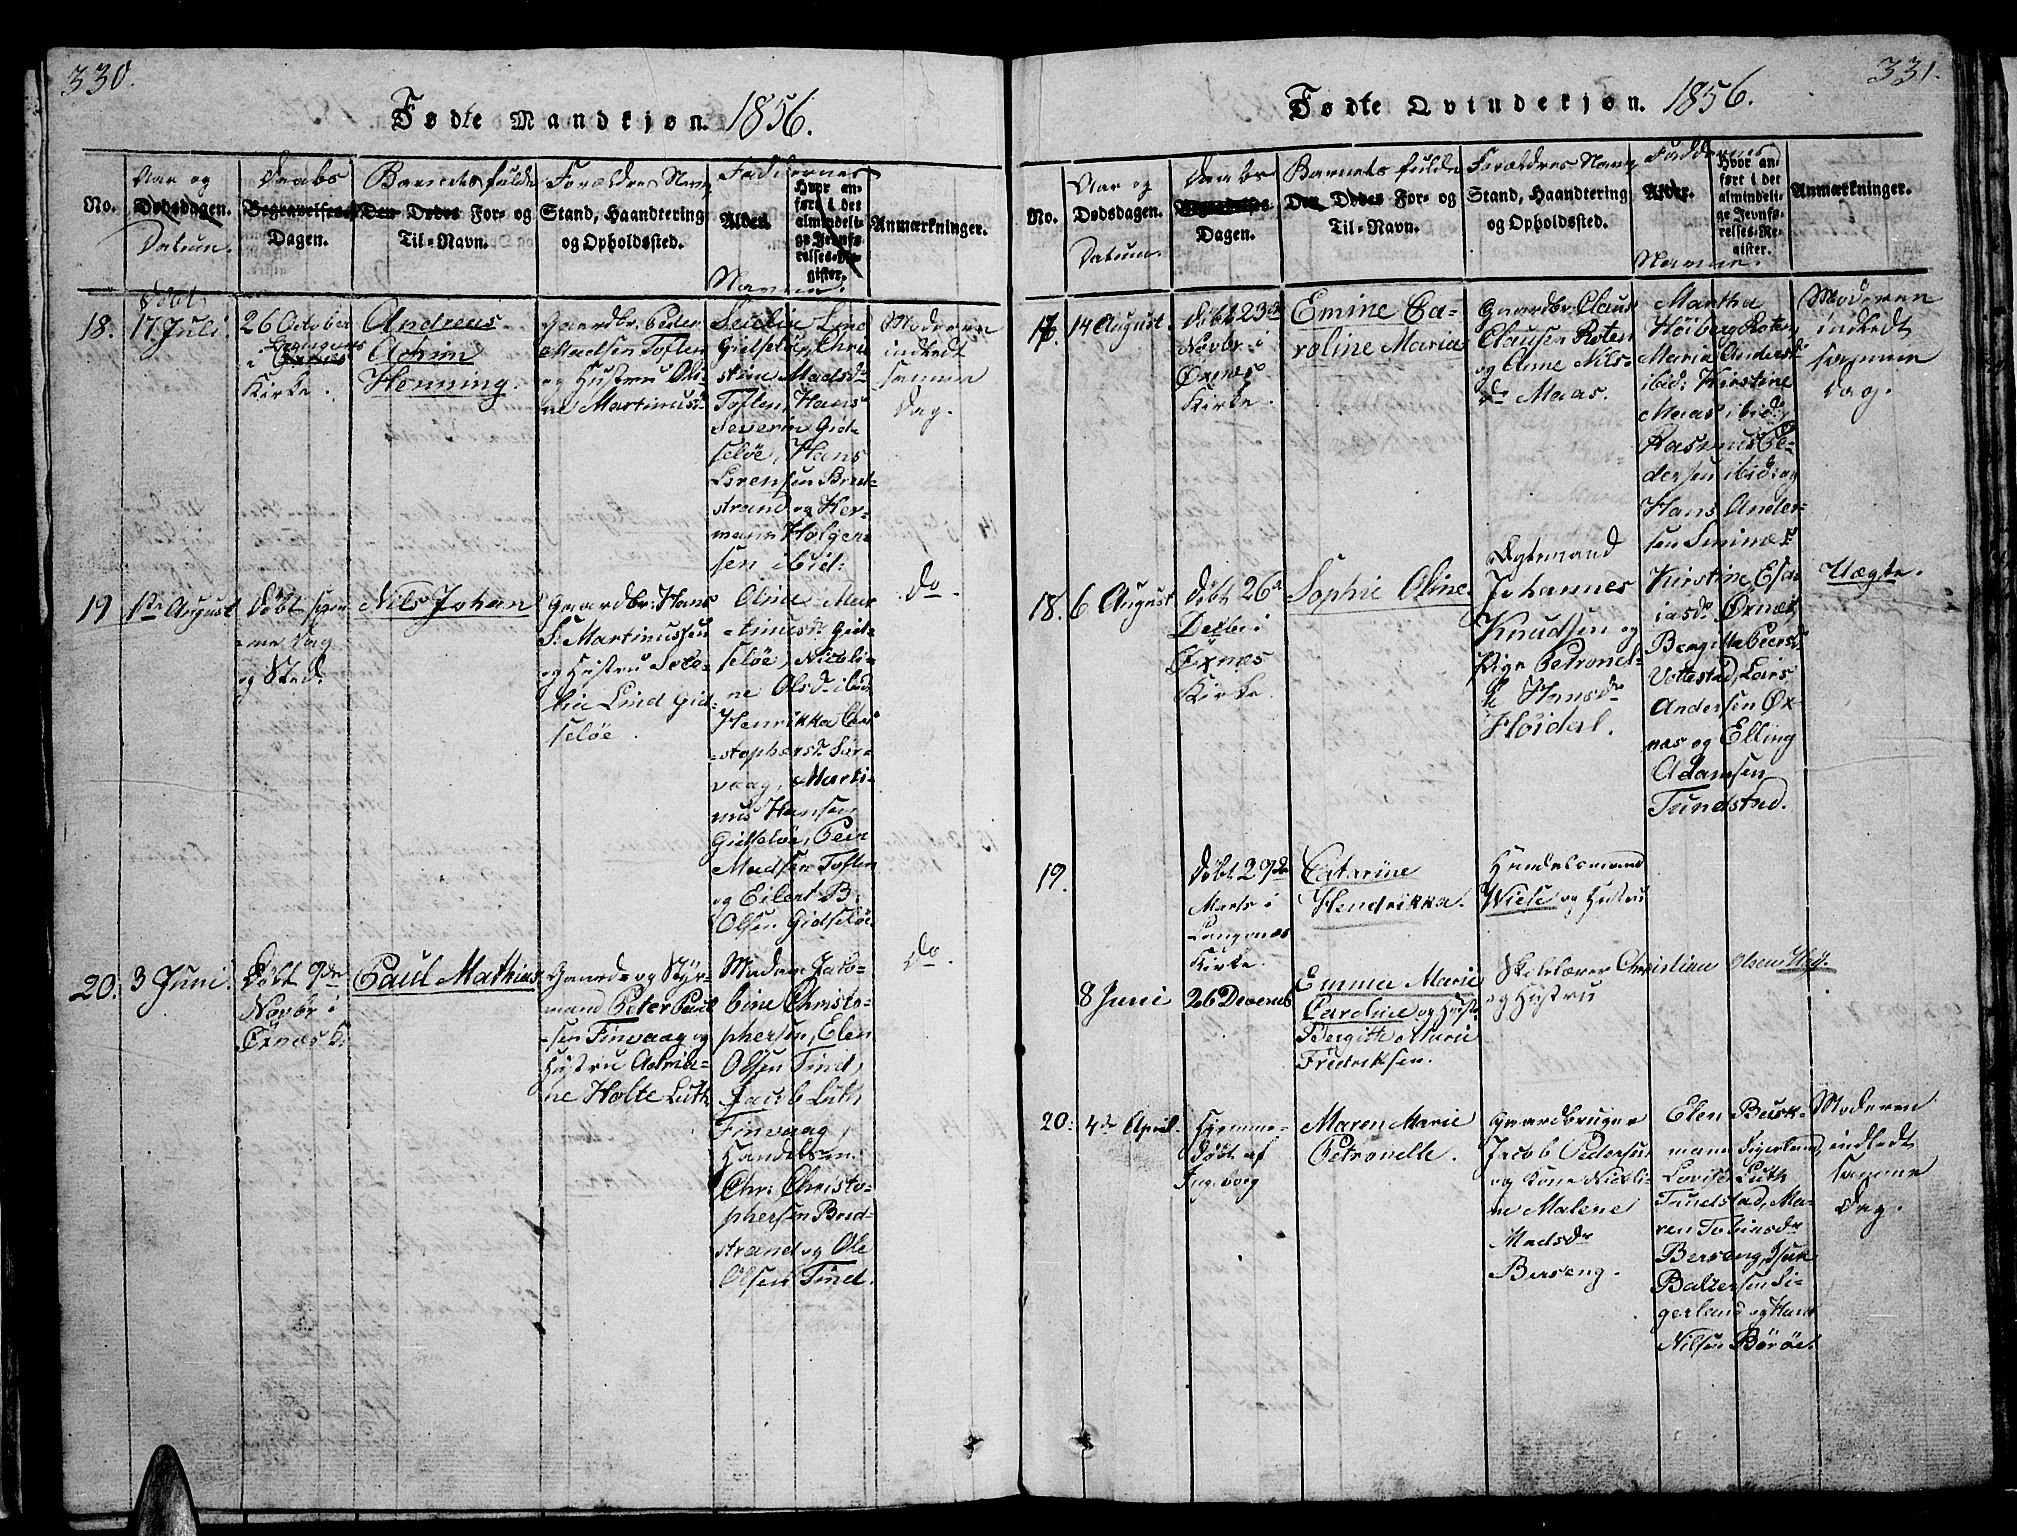 330.
Fødte Mandkjøn. 1856.
No.
Aar og
Dødsdagen.
Datum.
Daabs
Begravelses-
Dagen.
Barnets fulde
Den Dødes For- og
Til-Navn.
Forældres Navn
Stand, Haandtering
og Opholdssted.
Faddernes
Alder.
Navne.
Hvor an-
ført i det
almindeli-
ge Jevnfø-
relses-Re-
gister.
Anmærkninger.
18.
Født
17 Juli
26 October
i Langenes
Kirke.
Andreas
Achim
Henning.
Gaardbr. Peder
Madsen Toften
og Hustru Oli-
ne Martinusd.
Lind
Gidseløe, Chri
stine Madsd.
Toften, Hans
Severin Gid-
seløe, Hans
Lorensen Bred-
strand og Her-
mann Holger-
sen ibid:
Moderen
indledt
samme
Dag.
19
1ste August
Døbt sam-
me Dag
og Sted.
Nils Johan
Gaardbr: Hans
S. Martinussen
og Hustru
Lind Gid-
seløe.
Olina Mar
tinusd. Gid-
seløe, Nicoli-
ne Olsd. ibid.
Henrikka Chri
stophersd. Sør-
vaag, Marti-
nus Hansen
Gidseløe, Peder
Madsen Toften
og Eilert B.
Olsen Gidseløe.
Do.
20.
3 Juni.
Døbt 9de
Novbr i
Øxnæs K.
Paul Mathias
Gaard- og Styr-
mand Peter Paul
sen Finvaag og
Hustru Adria-
ne Holte Luth.
Madam Jako-
bine Christo-
phersen, Elen
Olsen Tind,
Jacob Luth
Finvaag,
Handelsm.
Chr: Christo-
phersen Bred-
strand og Ole
Olsen Tind.
Do.
331.
Fødte Qvindekjøn. 1856.
No.
Aar og
Dødsdagen.
Datum.
Daabs
Begravelses-
Dagen.
Barnets fulde
Den Dødes For- og
Til-Navn.
Forældres Navn
Stand, Haandtering
og Opholdssted.
Faddernes
Alder.
Navne.
Hvor an-
ført i det
almindeli-
ge Jevnfø-
relses-Re-
gister.
Anmærkninger.
17.
14 August.
Døbt 23de
Novbr. i
Øxnæs
Kirke.
Emine Ca-
roline Maria
Gaardbr. Claus
Clausen Roten
og Ane Nils-
dr. Maas.
Martha
Høiberg Roten
Maria Andersd.
ibid: Kirstine
Maas ibid.
Rasmus Pe-
dersen ibid. og
Hans Ander-
sen Sminæs
Moderen
indledt
samme
Dag.
18.
6 August
Døbt 26de
Decbr i
Øxnæs
Kirke.
Sophie Oline
Egtemand
Johannes
Knudsen og
Pige Petronel-
le Hansdr
Høidal.
Kirstine Esa-
iasd. Øxnæs,
Bergitta Peersd.
Vottestad, Lars
Andersen Øx-
næs og Elling
Adamsen
Tundstad.
Uægte.
19.
Døbt 29de
Marts i
Langenæs
Kirke.
Catarine
Hendrikka.
Handelsmand
Wiese og Hustru
8 Juni
26 Decemb
Emma Marie
Caroline og Hust.
Bergitte Marie
Fredriksen.
Skolelærer Christian Olsen
og Hustru
20.
4de April.
Hjemme-
døbt af
Ingeborg
Maren Marie
Petronelle.
Gaardbruger
Jacob Pedersen
og Kone Nicoli-
ne Malene
Madsdr
Berseng.
Elen Busk-
mann Sigerland,
Lovise Luth
Tundstad, Ma-
ren Tobiasdr
Berseng, Isak
Baltersen Si-
gerland og Hans
Nilsen Børøe.
Moderen
indledt
samme
Dag.